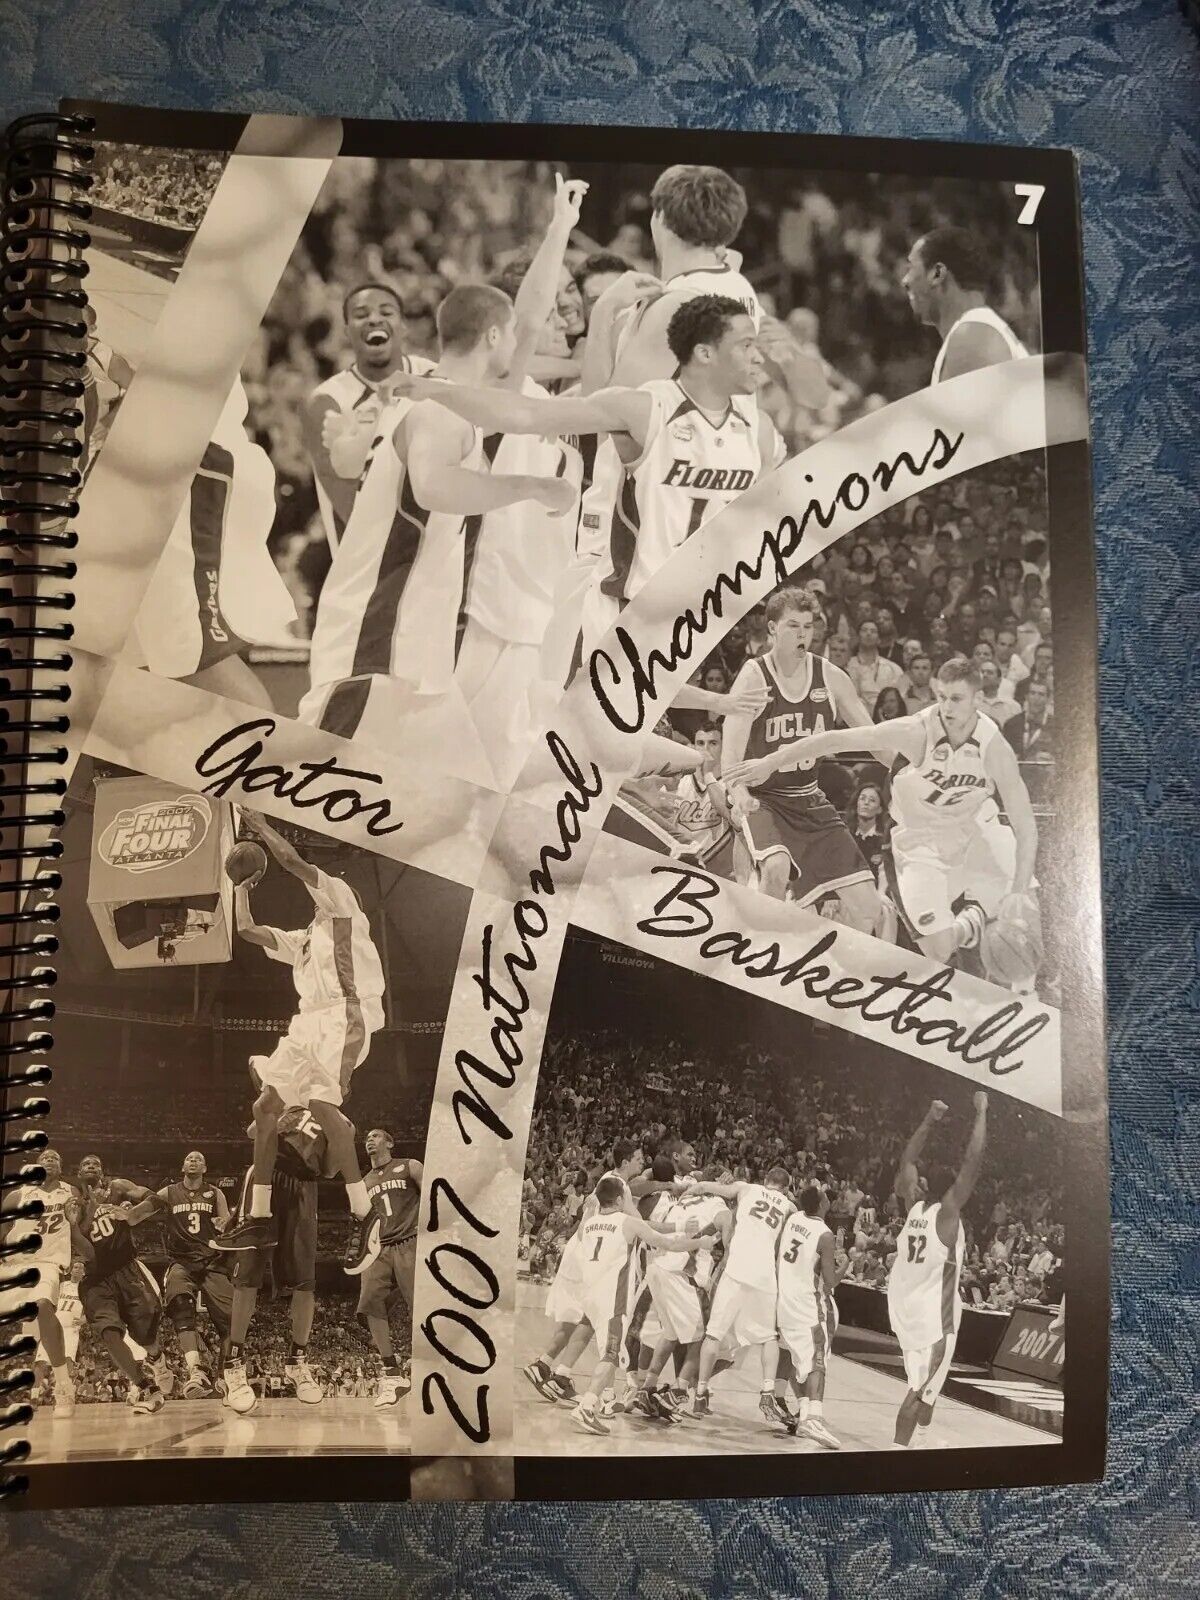 7
FLORIDA
1
Gators
Champions
UCLA
FLORIDA
12
Gator
National
Basketball
2007
2007
FINAL
FOUR
ATLANTA
VILLANOVA
32
20
OHIO STATE
3
OHIO STATE
1
11
1
TYLER
25
POWELL
3
32
2007